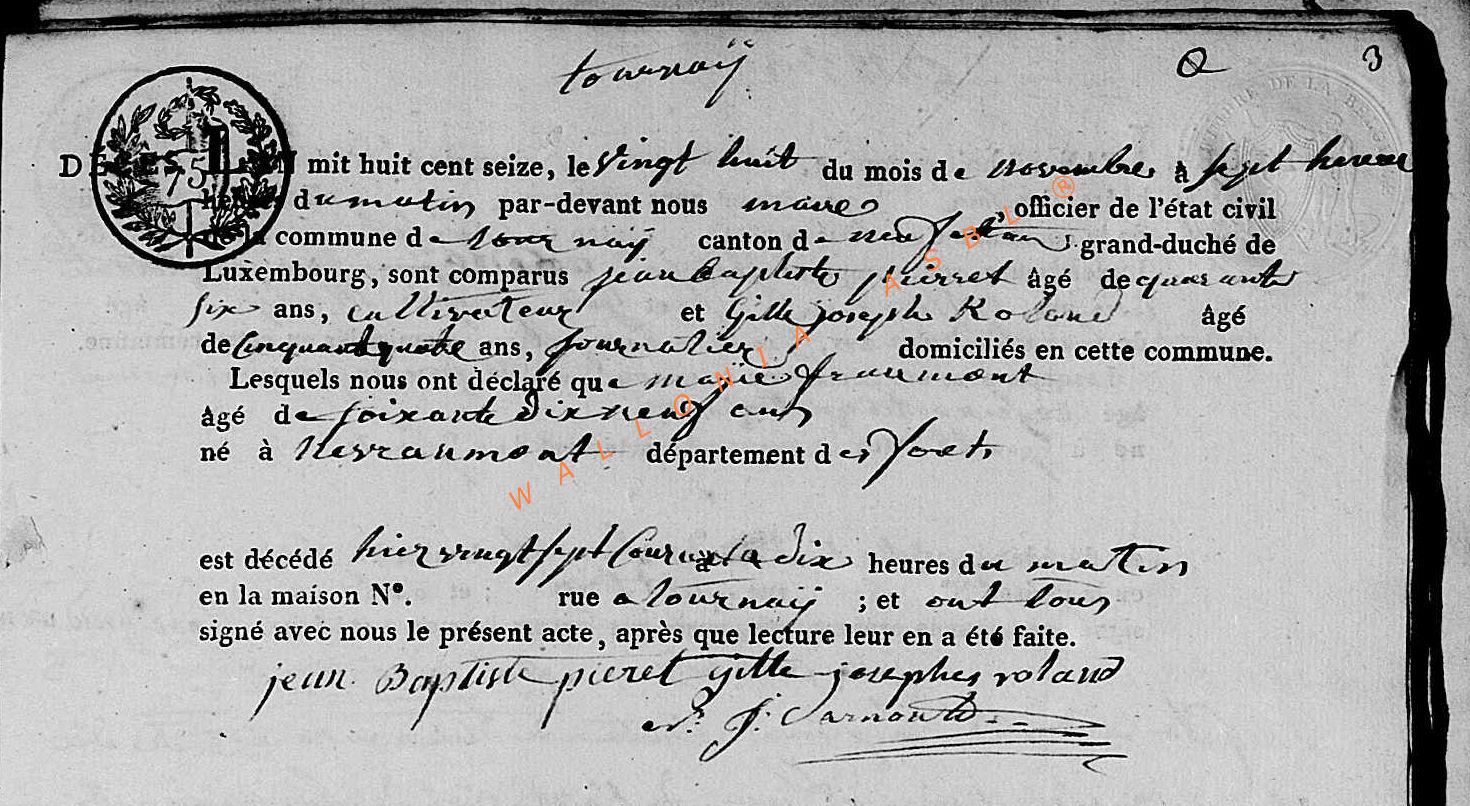 tournaÿ
3
DE L'ES 75 L'AN mit huit cent seize, le Vingt huit du mois de novembre à sept heures
heures du matin par-devant nous maire officier de l'état civil
de la commune de tournaÿ canton de neufchateau grand-duché de
Luxembourg, sont comparus jean baptiste pierret âgé de quarante
six ans, cultivateur et Gille joseph Roland âgé
de Cinquante quatre ans, journalier domiciliés en cette commune.
Lesquels nous ont déclaré que marie fraumont
âgé de soixante dix neuf ans
né à Verraumont département des forets
est décédé hier vingt sept Courant a dix heures du matin
en la maison N°. rue a tournaÿ ; et ont tous
signé avec nous le présent acte, après que lecture leur en a été faite.
jean Baptiste pieret gille josephes roland
J. Darnould
WALLONIA ASBL ®